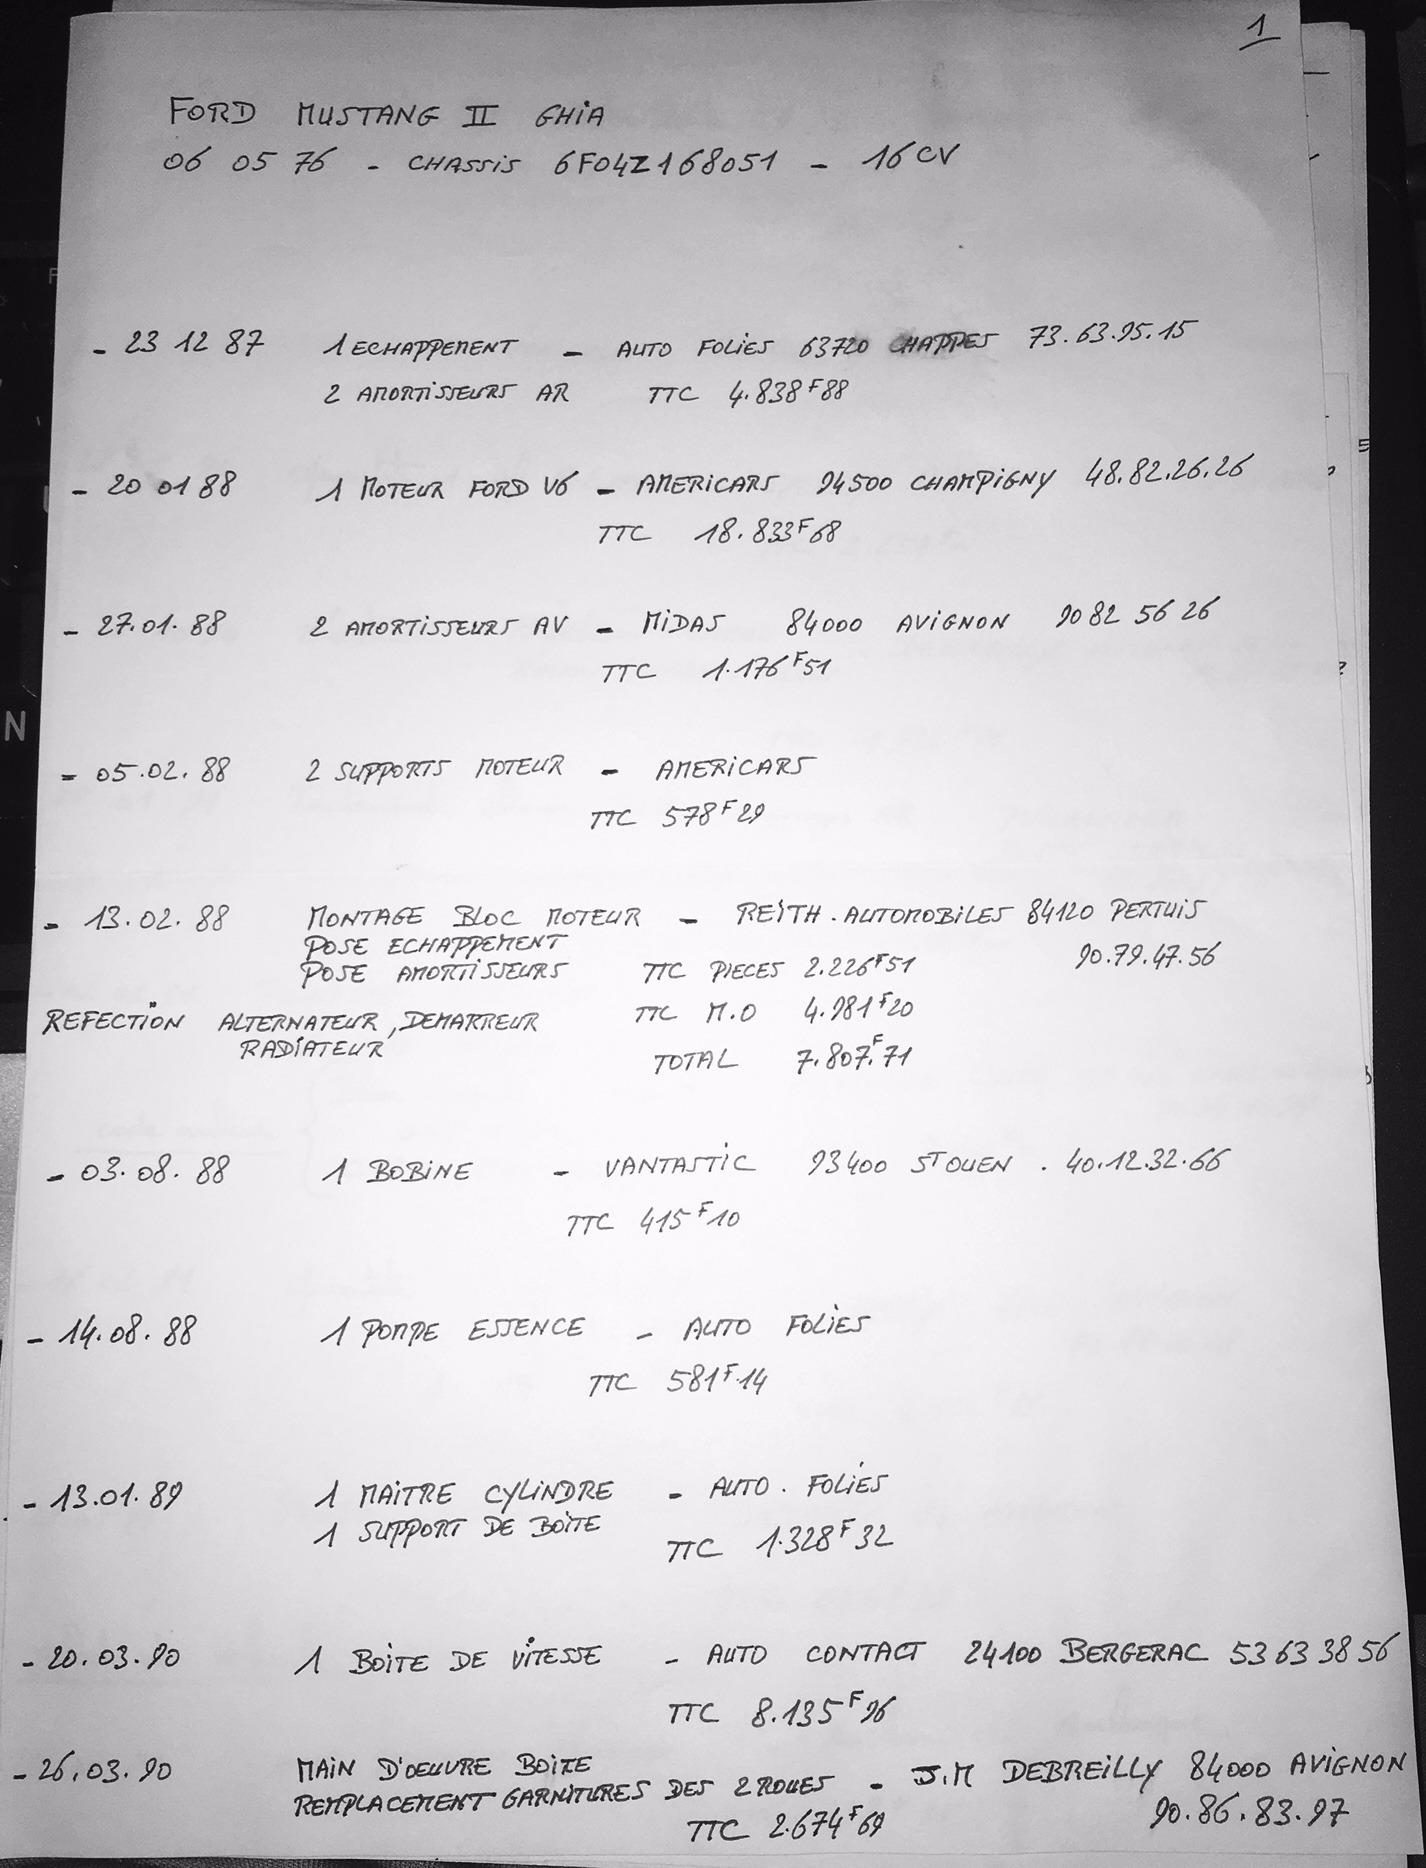 1
FORD MUSTANG II GHIA
06 05 76 - CHASSIS 6F04Z168051 - 16 CV
- 23 12 87 1 ECHAPPEMENT - AUTO FOLIES 63720 CHAPPES 73.63.95.15
2 AMORTISSEURS AR TTC 4.838F88
- 20 01 88 1 MOTEUR FORD V6 - AMERICARS 94500 CHAMPIGNY 48.82.26.26
TTC 18.833F68
- 27.01.88 2 AMORTISSEURS AV - MIDAS 84000 AVIGNON 90 82 56 26
TTC 1.176F51
- 05.02.88 2 SUPPORTS MOTEUR - AMERICARS
TTC 578F29
- 13.02.88 MONTAGE BLOC MOTEUR - REITH.AUTOMOBILES 84120 PERTUIS
POSE ECHAPPEMENT 90.79.47.56
POSE AMORTISSEURS TTC PIECES 2.226F51
REFECTION ALTERNATEUR, DEMARREUR TTC M.O 4.981F20
RADIATEUR TOTAL 7.807F71
- 03.08.88 1 BOBINE - VANTASTIC 93400 ST OUEN . 40.12.32.66
TTC 415F10
- 14.08.88 1 POMPE ESSENCE - AUTO FOLIES
TTC 581F14
- 13.01.89 1 MAITRE CYLINDRE - AUTO . FOLIES
1 SUPPORT DE BOITE TTC 1.328F32
- 20.03.90 1 BOITE DE VITESSE - AUTO CONTACT 24100 BERGERAC 53 63 38 56
TTC 8.135F96
- 26.03.90 MAIN D'OEUVRE BOITE - J.M DEBREILLY 84000 AVIGNON
REMPLACEMENT GARNITURES DES 2 ROUES 90.86.83.97
TTC 2.674F69